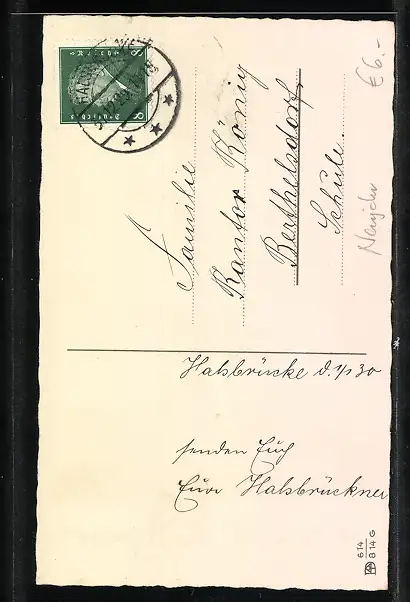 Familie
Kantor König
Berthelsdorf
Schule.
Halsbrücke d. 1/1 30
senden Euch
Eure Halsbrückner
€6.-
Neujahr
8 8
Deutsches
Reich
614
814 G